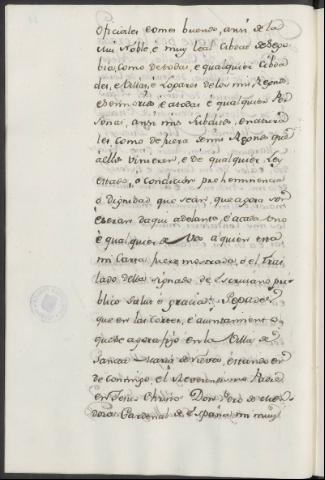 oficiales e omes buenos, ansi de la
mui Noble, e muy leal cibdad de Sego
bia, como de todas, e qualquier cibda
des, e Villas, e Logares de los mis Regnos,
e Señorios, e a todas e qualquier Per
sonas, ansi mis subditos, e natura
les, como de fuera de mis Regnos que
a ellos vinieren, e de qualquier Ley
estado, o condicion preheminencia
o dignidad que sean, que agora son
e seran daqui adelante, e a cada uno
e qualquier de Vos a quien esta
mi Carta fuere mostrada, o el tras
lado della signado de Escrivano pu
blico salud e gracia. Sepades
que en las Cortes, e aiuntamiento
que Yo agora fijo en la Villa de
Santa Maria de Nieva, estando en
de conmigo, el Reverendisimo Padre
en Jesu Christo Don Pero de Men
doza Cardenal de España mi muy